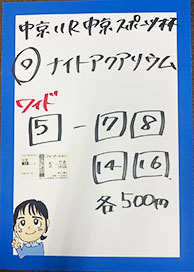 中京11R 中京スポーツ杯
◎ ナイトアクアリウム
ワイド
5 - 7 8
14 16
各500円